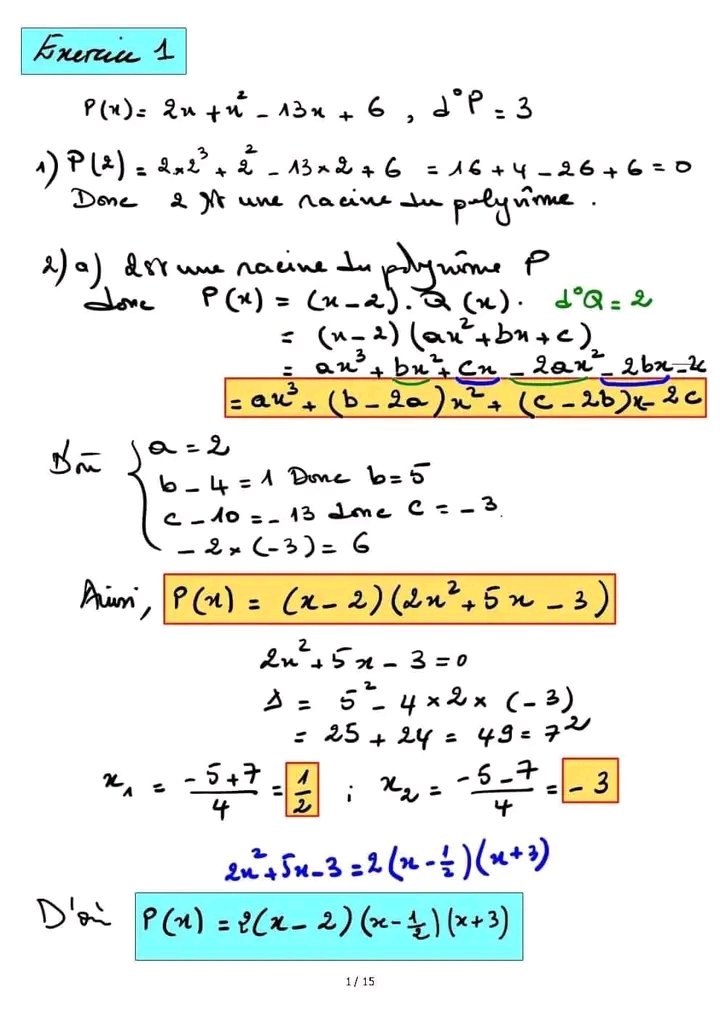 Exercice 1
P(x) = 2x + x² - 13x + 6 , d°P = 3
1) P(2) = 2×2³ + 2² - 13×2 + 6 = 16 + 4 - 26 + 6 = 0
Donc 2 est une racine du polynôme .
2) a) 2 est une racine du polynôme P
donc P(x) = (x-2). Q(x). d°Q = 2
= (x-2)(ax²+bx+c)
= ax³ + bx² + cx - 2ax² - 2bx - 2c
= ax³ + (b-2a)x² + (c-2b)x - 2c
D'où { a = 2
b - 4 = 1 Donc b = 5
c - 10 = - 13 donc c = - 3.
- 2 × (-3) = 6
Ainsi, P(x) = (x-2)(2x²+5x-3)
2x²+5x-3=0
Δ = 5² - 4×2×(-3)
= 25 + 24 = 49 = 7²
x₁ = (-5+7)/4 = 1/2 ; x₂ = (-5-7)/4 = -3
2x²+5x-3 = 2(x-1/2)(x+3)
D'où P(x) = 2(x-2)(x-1/2)(x+3)
1 / 15